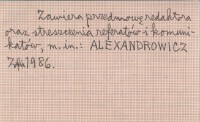 Zawiera przedmowę redaktora
oraz streszczenia referatów i komuni-
katów, m.in.: ALEXANDROWICZ
1986.